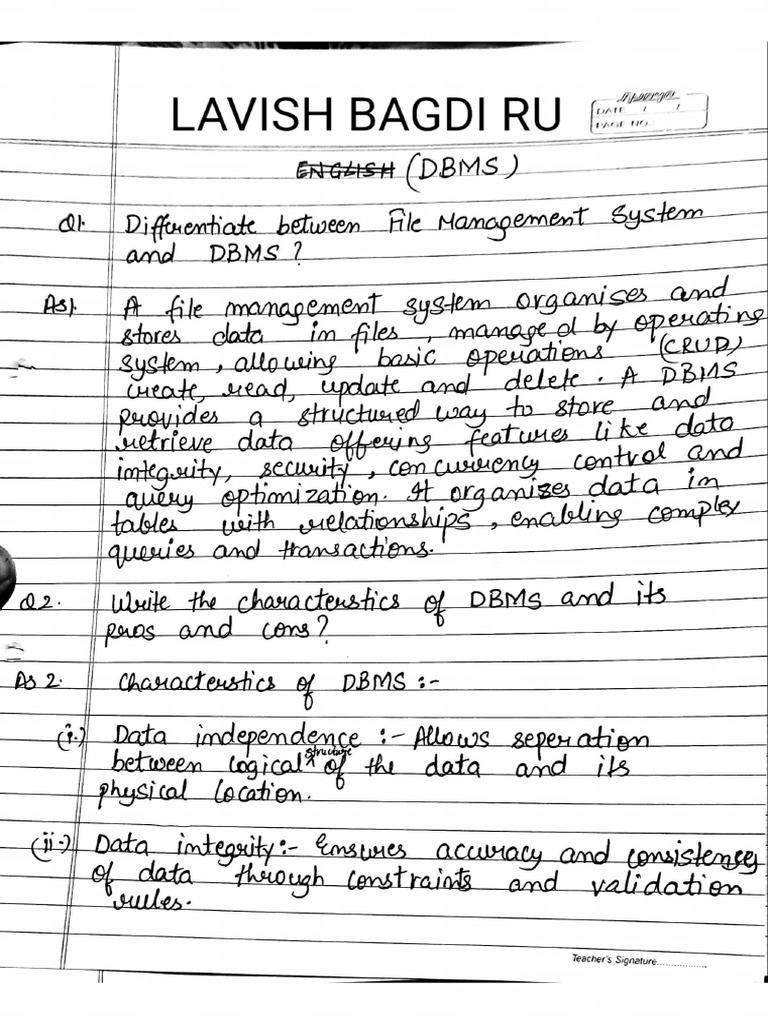 LAVISH BAGDI RU
DATE / /
PAGE NO.
ENGLISH (DBMS)
Q1. Differentiate between File Management System
and DBMS?
As1. A file management system organises and
stores data in files, managed by operating
system, allowing basic operations (CRUD)
create, read, update and delete. A DBMS
provides a structured way to store and
retrieve data offering features like data
integrity, security, concurrency control and
query optimization. It organizes data in
tables with relationships, enabling complex
queries and transactions.
Q2. Write the characterstics of DBMS and its
pros and cons?
As 2. Characterstics of DBMS :-
(i.) Data independence :- Allows seperation
between logical structure of the data and its
physical location.
(ii-) Data integrity:- Ensures accuracy and consistency
of data through constraints and validation
rules.
Teacher's Signature..................